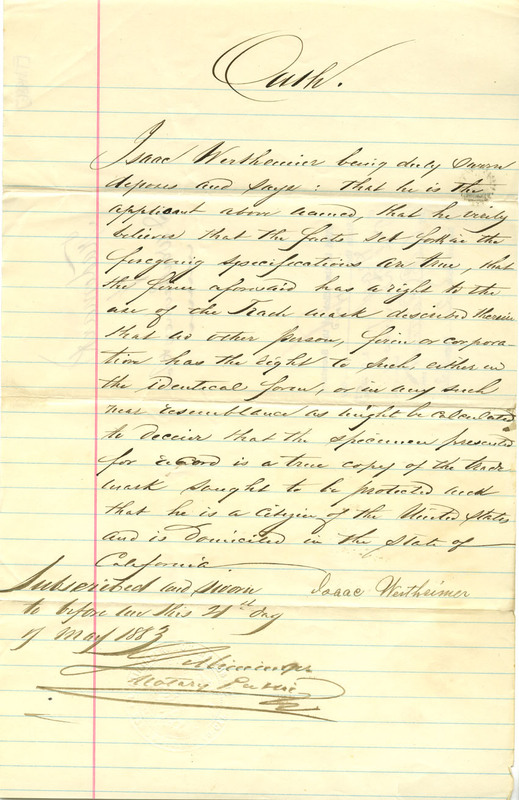 Oath.
Isaac Wertheimer being duly sworn
deposes and says: that he is the
applicant above named, that he verily
believes that the facts set forth in the
foregoing specifications are true, that
the firm aforesaid has a right to the
use of the Trade mark described therein
that no other person, firm or corpora-
tion has the right to such, either in
the identical form, or in any such
near resemblance as might be calculated
to deceive that the specimen presented
for record is a true copy of the trade
mark sought to be protected and
that he is a citizen of the United States
and is domiciled in the State of
California.
Isaac Wertheimer
Subscribed and sworn
to before me this 21st day
of May 1883
Notary Public